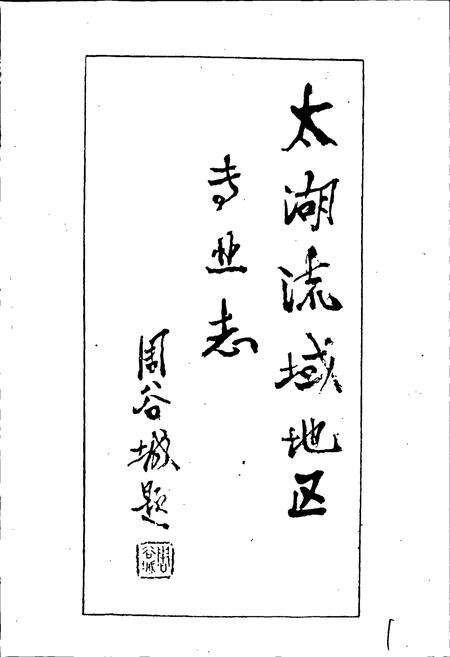 太湖流域地区
专业志
周谷城题
周谷城